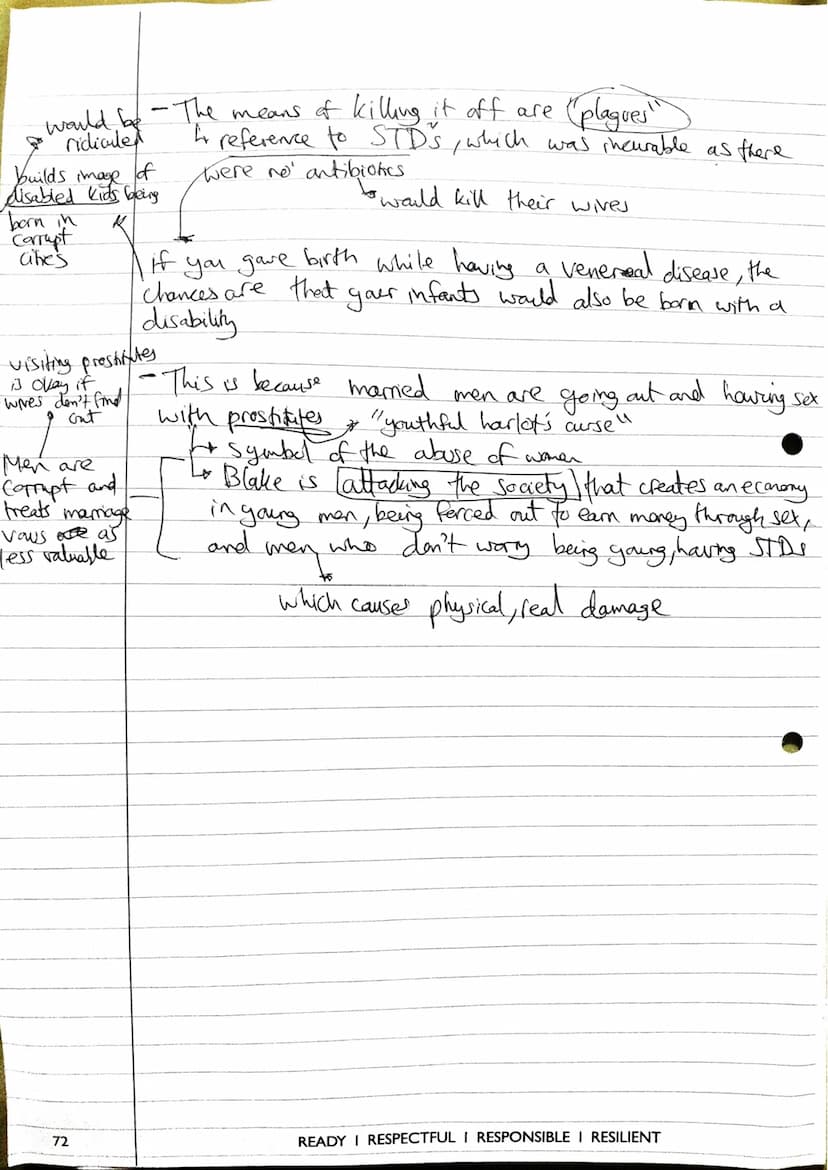 would be
ridiculed
builds image of
disabled kids being
born in
corrupt
cities
- The means of killing it off are "plagues"
↳ reference to STD's, which was incurable as there
were no antibiotics
↳ would kill their wives
if you gave birth while having a venereal disease, the
chances are that your infants would also be born with a
disability
visiting prostitutes
is okay if
wives don't find
out
Men are
corrupt and
treats marriage
vows as
less valuable
- This is because married men are going out and having sex
with prostitutes → "youthful harlot's curse"
↳ symbol of the abuse of women
↳ Blake is attacking the society that creates an economy
in young men, being forced out to earn money through sex,
and men who don't worry being young, having STDs
which causes physical, real damage
72
READY I RESPECTFUL I RESPONSIBLE I RESILIENT